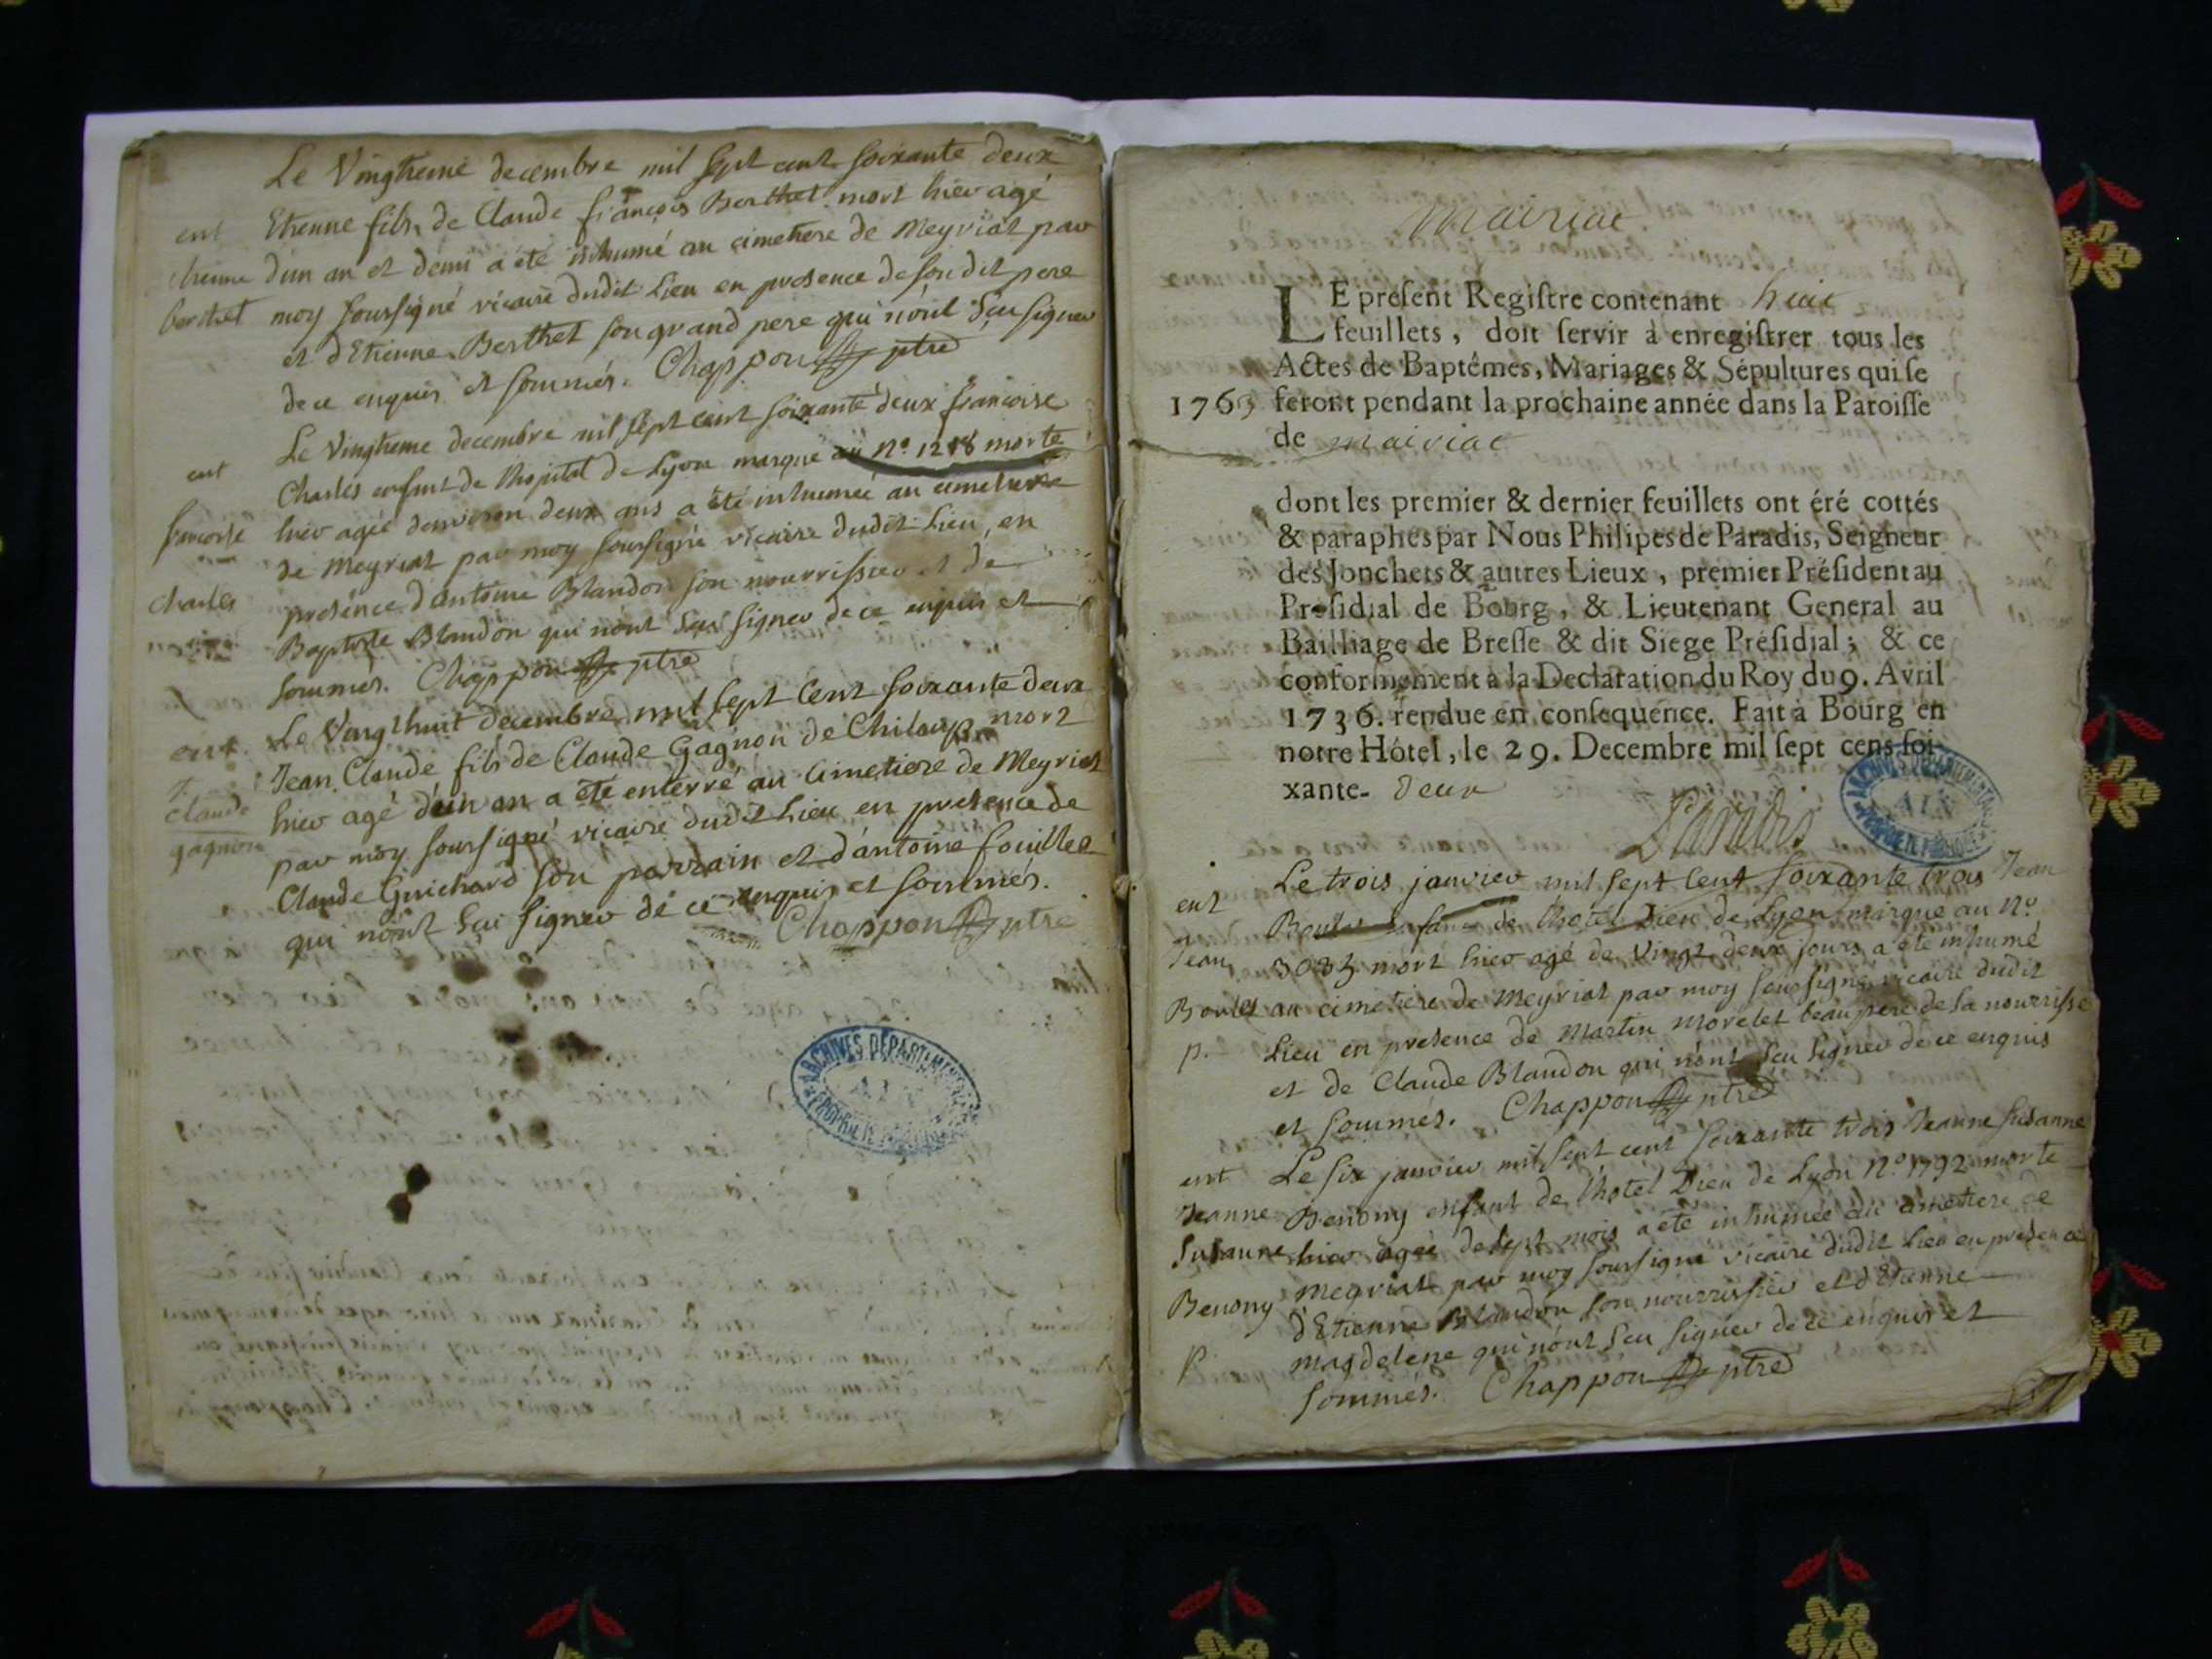 Le Vingtieme decembre mil sept cent soixante deux
ent Etienne fils de Claude françois Berthet mort hier agé
etienne d'un an et demi a été inhumé au cimetiere de Meyriat par
berthet moy soussigné vicaire dudit Lieu en presence de son dit pere
et d'Etienne Berthet son grand pere qui n'ont sçu signer
de ce enquis et sommés. Chappon ptre
Le Vingtieme decembre mil sept cent soixante deux francoise
ent Charles enfant de l'hopital de Lyon marqué au N° 1218 morte
francoise hier agée d'environ deux ans a été inhumée au cimetiere
de Meyriat par moy soussigné vicaire dudit Lieu, en
Charles presence d'antoine Blandon son nourrissier et de
Baptiste Blandon qui n'ont sçu signer de ce enquis et
sommés. Chappon ptre
ent. Le Vingt huit decembre mil sept Cent soixante deux
J. Jean Claude fils de Claude Gagnon de Chiloup mort
claude hier agé d'un an a été enterré au Cimetiere de Meyriat
gagnon par moy soussigné vicaire dudit Lieu en presence de
Claude Guichard son parrain et d'antoine fouillet
qui n'ont sçu signer de ce enquis et sommés.
Chappon ptre
ARCHIVES DÉPARTEMENTALES
AIN
PROPRIÉTÉ PUBLIQUE
Mairiat
LE present Registre contenant huit
feuillets, doit servir à enregistrer tous les
Actes de Baptêmes, Mariages & Sépultures qui se
1763 feront pendant la prochaine année dans la Paroisse
de mairiat
dont les premier & dernier feuillets ont éré cottés
& paraphés par Nous Philipes de Paradis, Seigneur
des Jonchets & autres Lieux, premier Président au
Présidial de Bourg, & Lieutenant General au
Bailliage de Bresse & dit Siege Présidial; & ce
conformément à la Declaration du Roy du 9. Avril
1736. rendue en consequence. Fait à Bourg en
notre Hôtel, le 29. Decembre mil sept cens soi-
xante- deux
Paradis
ARCHIVES DÉPARTEMENTALES
AIN
PROPRIÉTÉ PUBLIQUE
ent Le trois janvier mil sept Cent soixante trois Jean
Boulet enfant de l'hotel Dieu de Lyon marqué au N°
Jean mort hier agé de Vingt deux jours a été inhumé
Boulet au cimetiere de Meyriat par moy soussigné vicaire dudit
p. Lieu en presence de Martin Morelet beaupere de la nourrisse
et de Claude Blandon qui n'ont sçu signer de ce enquis
et sommés. Chappon ptre
ent Le six janvier mil sept cent soixante trois Jeanne Susanne
Jeanne Benony enfant de l'hotel Dieu de Lyon N° 1792 morte
Susanne hier agée de sept mois a été inhumée au cimetiere de
Benony Meyriat par moy soussigné vicaire dudit Lieu en presence
d'Etienne Blandon son nourrissier et d'Etienne
p. magdelene qui n'ont sçu signer de ce enquis et
sommés. Chappon ptre